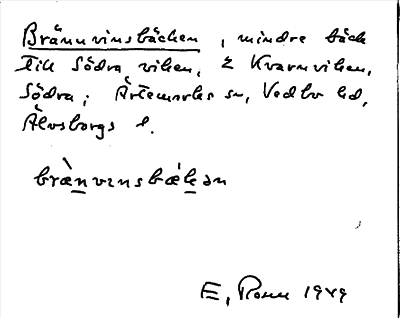 Brännvinsbäcken, mindre bäck
till Södra viken, 2 Kvarnviken,
Södra; Ärtemarks sn, Vedbo hd,
Älvsborgs l.
bræ̀nvɪnsbǽkən
E, Rosu 1949